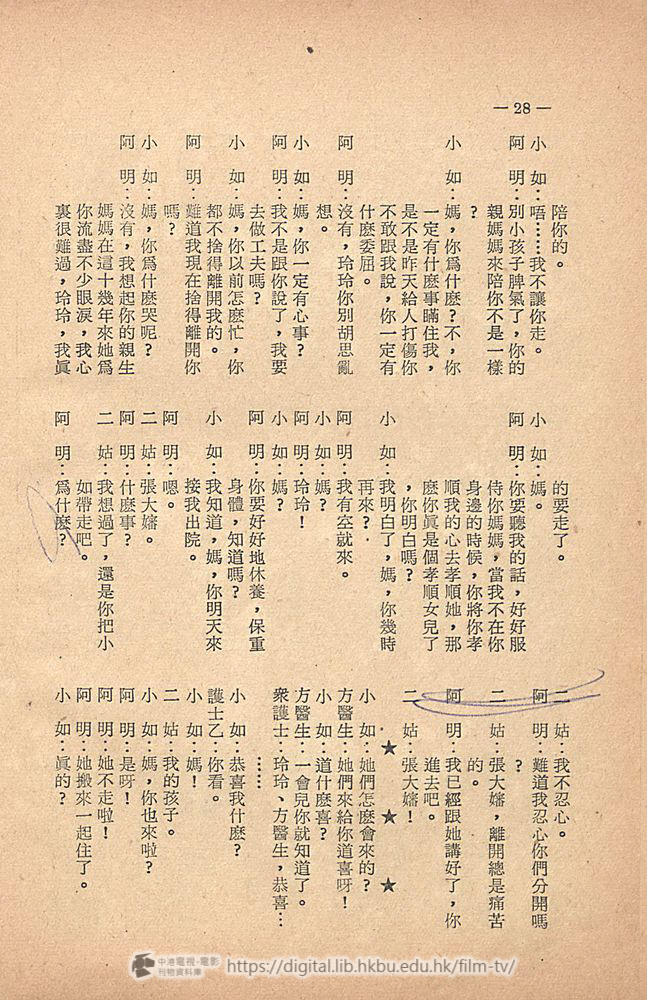 — 28 —
陪你的。
小　如：唔……我不讓你走。
阿　明：別小孩子脾氣了，你的
親媽媽來陪你不是一樣
？
小　如：媽，你爲什麽？不，你
一定有什麽事瞞住我，
是不是昨天給人打傷你
不敢跟我說，你一定有
什麽委屈。
阿　明：沒有，玲玲你別胡思亂
想。
小　如：媽，你一定有心事？
阿　明：我不是跟你說了，我要
去做工夫嗎？
小　如：媽，你以前怎麽忙，你
都不捨得離開我的。
阿　明：難道我現在捨得離開你
嗎？
小　如：媽，你爲什麽哭呢？
阿　明：沒有，我想起你的親生
媽媽在這十幾年來她爲
你流盡不少眼淚，我心
裏很難過，玲玲，我眞
的要走了。
小　如：媽。
阿　明：你要聽我的話，好好服
侍你媽媽，當我不在你
身邊的時候，你將你孝
順我的心去孝順她，那
麽你眞是個孝順女兒了
，你明白嗎？
小　如：我明白了，媽，你幾時
再來？
阿　明：我有空就來。
小　如：媽？
阿　明：玲玲！
小　如：媽？
阿　明：你要好好地休養，保重
身體，知道嗎？
小　如：我知道，媽，你明天來
接我出院。
阿　明：嗯。
二　姑：張大嬸。
阿　明：什麽事？
二　姑：我想過了，還是你把小
如帶走吧。
阿　明：爲什麽？
二　姑：我不忍心。
阿　明：難道我忍心你們分開嗎
？
二　姑：張大嬸，離開總是痛苦
的。
阿　明：我已經跟她講好了，你
進去吧。
二　姑：張大嬸！
★　★　★
小　如：她們怎麽會來的？
方醫生：她們來給你道喜呀！
小　如：道什麽喜？
方醫生：一會兒你就知道了。
衆護士：玲玲、方醫生，恭喜…
……
小　如：恭喜我什麽？
護士乙：你看。
小　如：媽！
二　姑：我的孩子。
小　如：媽，你也來啦？
阿　明：是呀！
阿　明：她不走啦！
阿　明：她搬來一起住了。
小　如：眞的？
中港電視·電影
刊物資料庫
https://digital.lib.hkbu.edu.hk/film-tv/